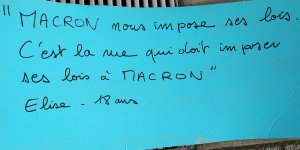 "MACRON nous impose ses lois.
C'est la rue qui doit imposer
ses lois à MACRON"
Elise - 18 ans